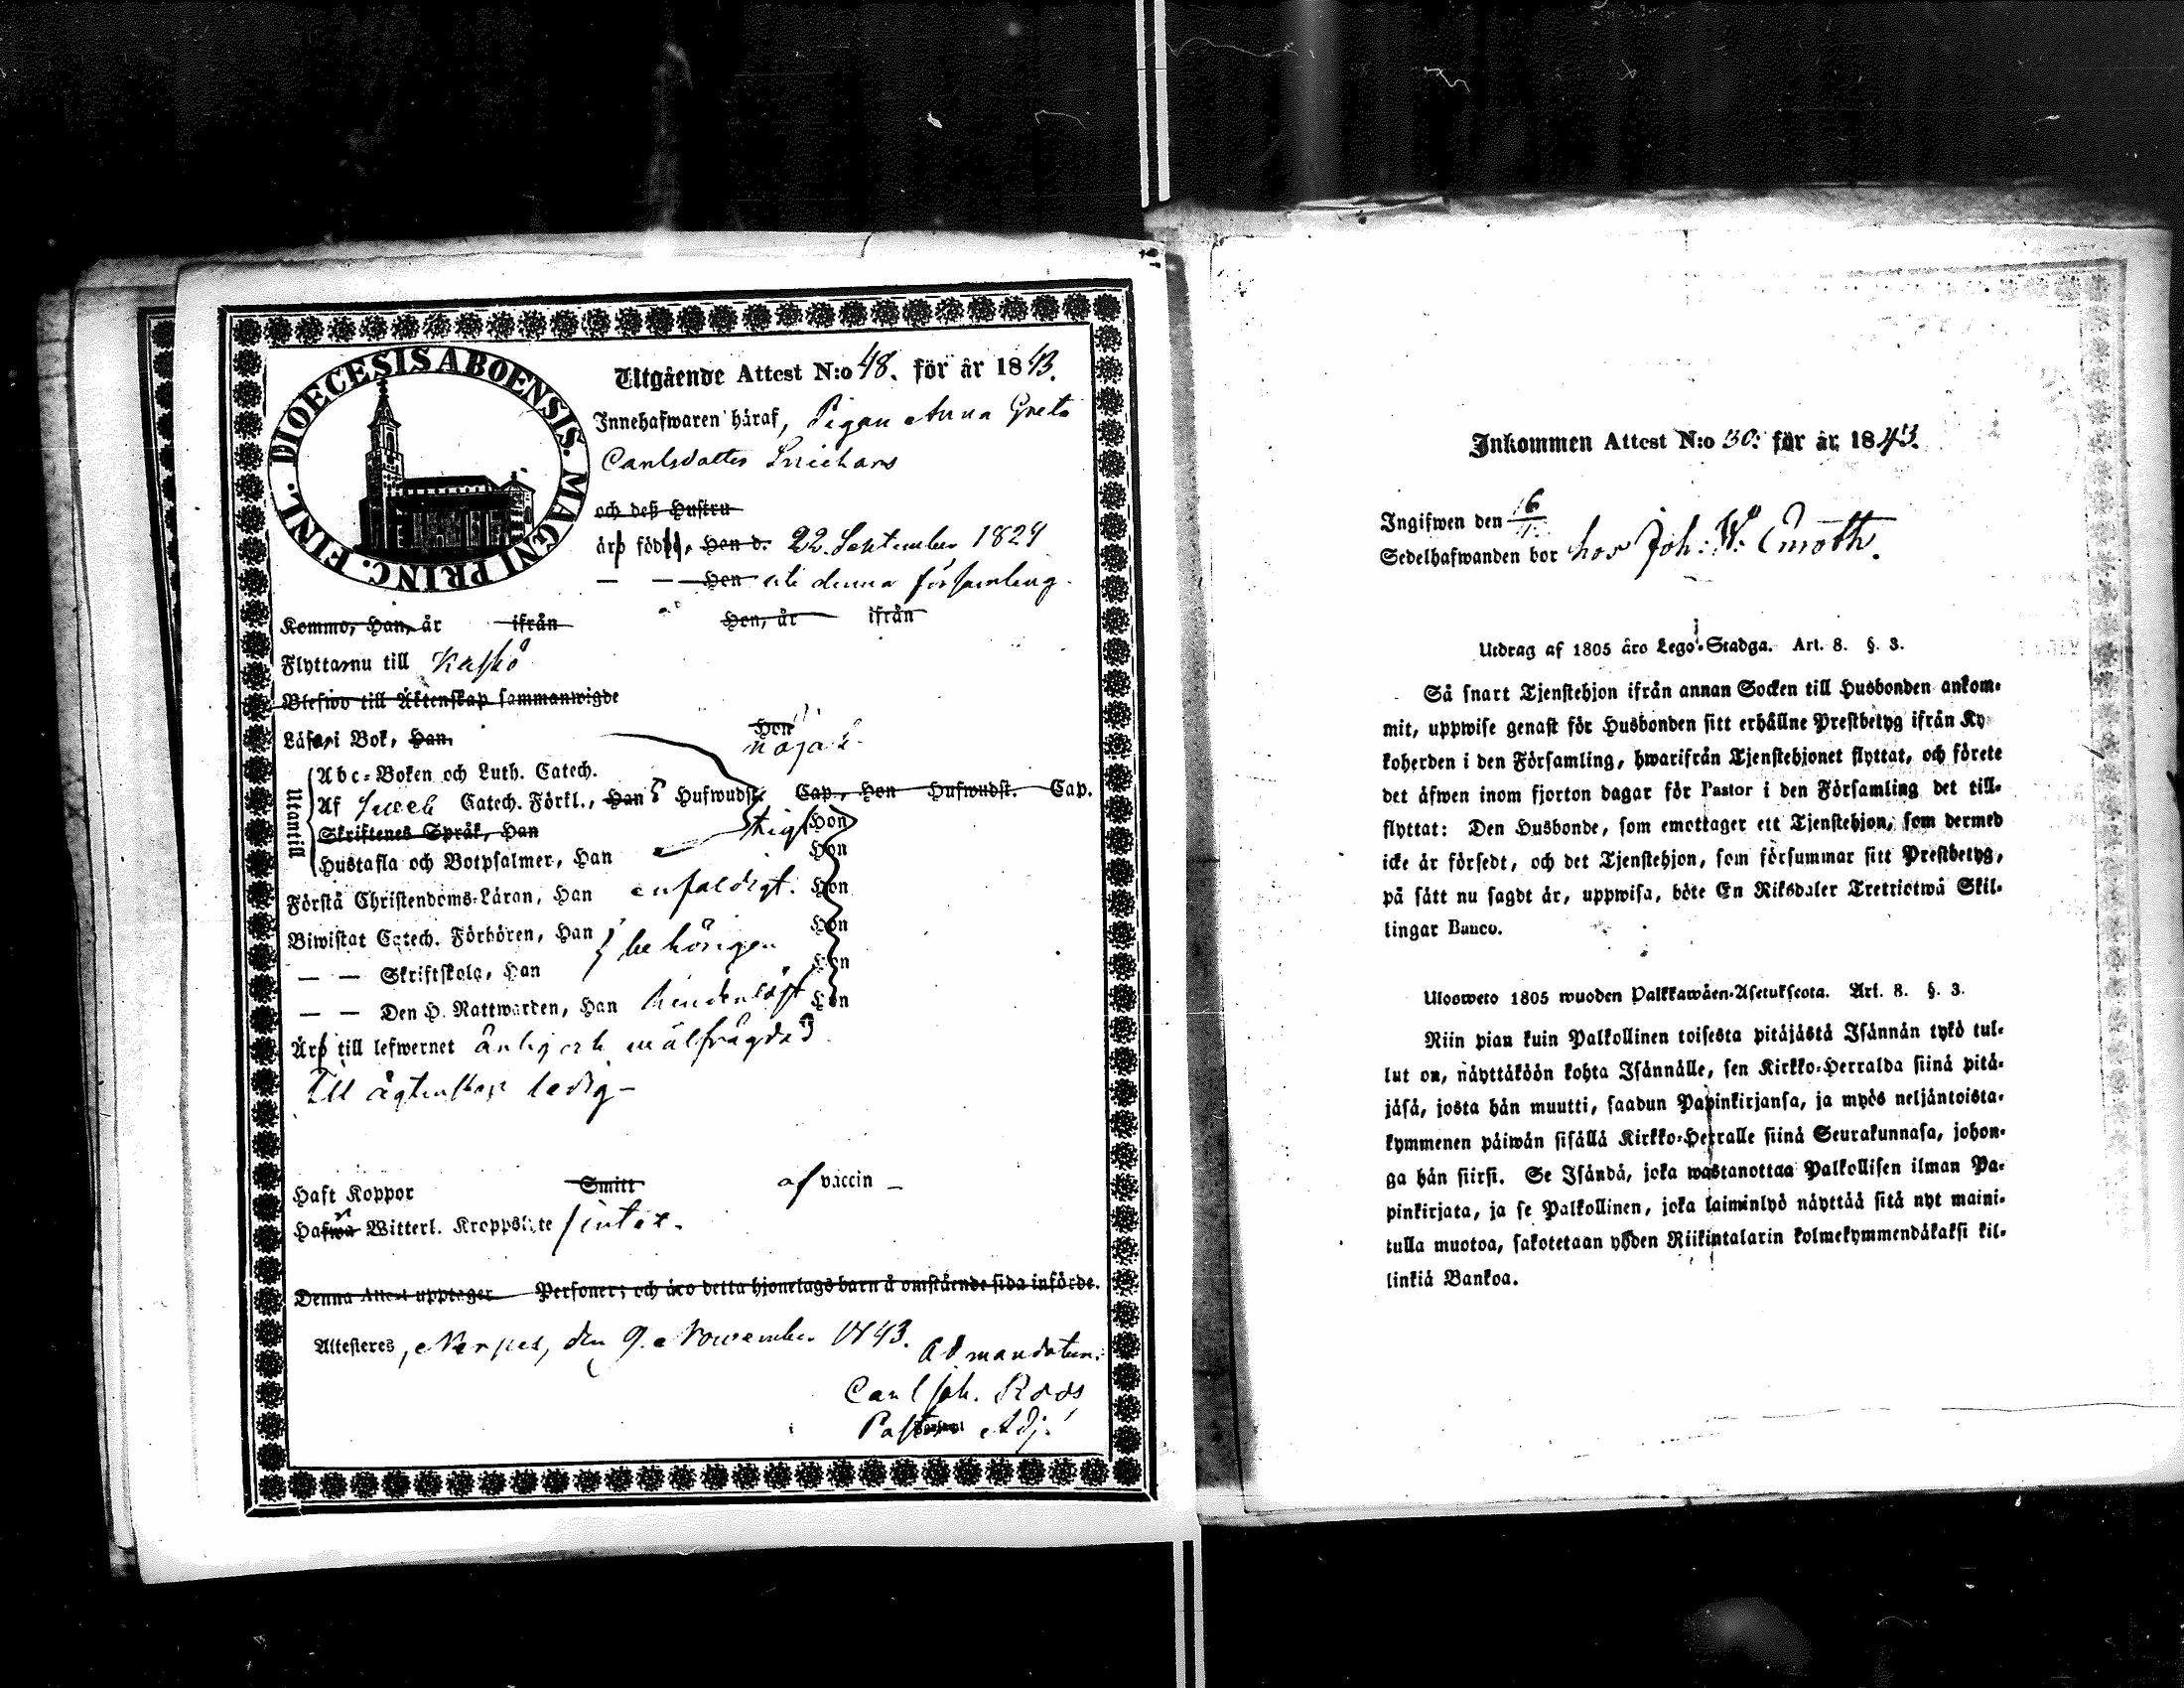 DIOECESIS ABOENSIS. MAGNI PRINC. FINL.
Utgående Attest N:o 48. för år 1843.
Innehafwaren häraf, Pigan Anna Greta
Carlsdotter
och deß Hustru
äro födde, Hen d. 22. September 1824
— — Hen uti denna församling.
Kommo, Han, år ifrån Hen, år ifrån
Flyttar nu till Kaskö
Blefwo till Äktenskap sammanwigde
Läser i Bok, Han, Hon nöjakt
Utantill
Abc-Boken och Luth. Catech.
Af Catech. Förkl., Han 5 Hufwudst. Cap., Hon Hufwudst. Cap.
Skriftenes Språk, Han Hon
Hustafla och Botpsalmer, Han Hon
Förstå Christendoms-Läran, Han enfaldigt. Hon
Biwistat Catech. Förhören, Han behörigen Hon
— — Skriftskola, Han Hon
— — Den H. Nattwarden, Han hinderlöst Hon
Äro till lefwernet ärlig och wälfrägdad
Till ägtenskap ledig —
Haft Koppor Smitt af vaccin —
Hafwa Witterl. Kroppslyte intet.
Denna Attest upptager Personer; och äro detta hjonelags barn å omstående sida införde.
Attesteras, Nerpes, den 9. November 1843.
Ad mandatum:
Carl Joh. Roos
Pastors Adj.
Inkommen Attest N:o 30: för år 1843.
Ingifwen den 16/11.
Sedelhafwanden bor hos Joh: W:
Utdrag af 1805 års Lego-Stadga. Art. 8. §. 3.
Så snart Tjenstehjon ifrån annan Socken till Husbonden ankom-
mit, uppwise genast för Husbonden sitt erhållne Prestbetyg ifrån Ky
koherden i den Församling, hwarifrån Tjenstehjonet flyttat, och förete
det äfwen inom fjorton dagar för Pastor i den Församling det till-
flyttat: Den Husbonde, som emottager ett Tjenstehjon, som dermed
icke är försedt, och det Tjenstehjon, som försummar sitt Prestbetyg,
på sätt nu sagdt är, uppwisa, böte En Riksdaler Tretriotwå Skil-
lingar Banco.
Ulosweto 1805 wuoden Palkkawäen-Asetuksesta. Art. 8. §. 3.
Niin pian kuin Palkollinen toisesta pitäjästä Isännän tykö tul-
lut on, näyttäköön kohta Isännälle, sen Kirkko-Herralda siinä pitä-
jäsä, josta hän muutti, saadun Papinkirjansa, ja myös neljäntoista-
kymmenen päiwän sisällä Kirkko-Herralle siinä Seurakunnasa, johon-
ga hän siirsi. Se Isändä, joka wastanottaa Palkollisen ilman Pa-
pinkirjata, ja se Palkollinen, joka laiminlyö näyttää sitä nyt maini-
tulla muotoa, sakotetaan yhden Riikintalarin kolmekymmendäkaksi kil-
linkiä Bankoa.